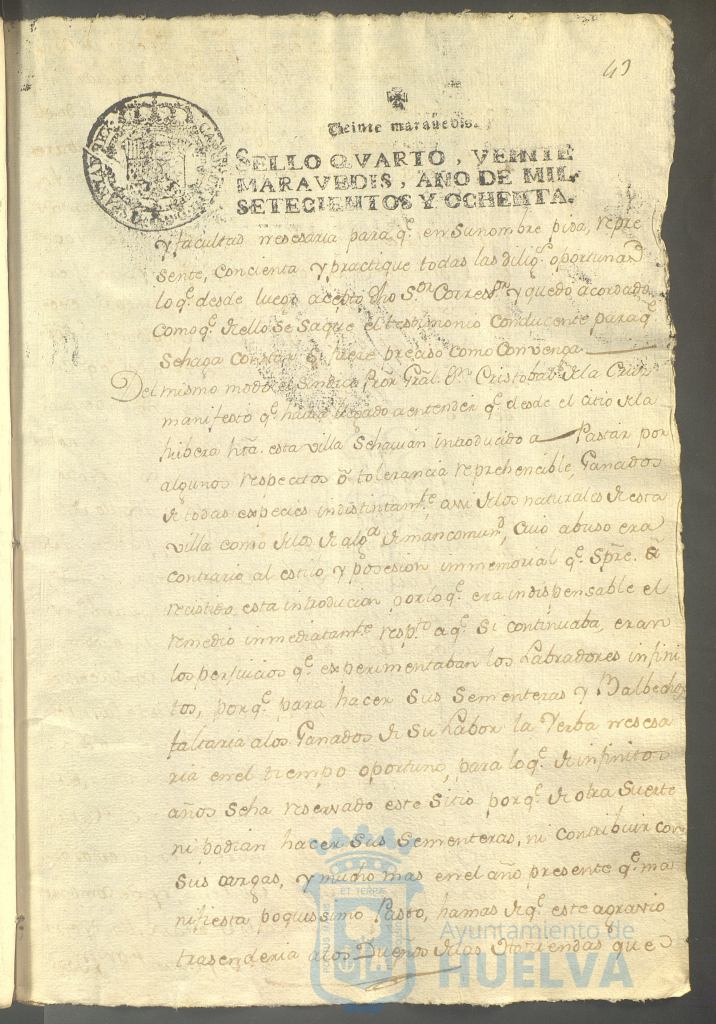 43
Veinte maravedis.
SELLO QVARTO, VEINTE
MARAVEDIS, AÑO DE MIL
SETECIENTOS Y OCHENTA.
y facultad nesesaria para q.e en Su nombre pida, repre
sente, concienta y practique todas las dilig.s oportunas
lo q.e desde luego acepto dho S.or Corres.or y quedo acordado
como q.e de ello Se Saque el testimonio conducente para q.e
Se haga constar q.e fuere preciso como convenga
Del mismo modo el Sindico Pror Gral. D.n Cristobal de la
manifesto q.e havia llegado a entender q.e desde el citio de la
Ribera hta. esta villa Se havian introducido a Pastar por
algunos respectos ô tolerancia reprehencible, Ganados
de todas especies indistintam.te assi de los naturales de esta
villa como de los de alg.a de mancomun.d, cuio abuso era
contrario al estilo, y posesion immemorial q.e Spre. â
recistido esta introducion por lo q.e era indispensable el
remedio inmediatam.te resp.to a q.e Si continuaba, eran
los perjuicios q.e experimentaban los Labradores infini
tos, porq.e para hacer Sus Sementeras y Balbechos
faltaria a los Ganados de Su Labor la Yerba nesesa
ria en el tiempo oportuno, para lo q.e de infinitos
años Se ha reservado este Sitio porq.e de otra Suerte
ni podian hacer Sus Sementeras, ni contribuir con
Sus cargas, y mucho mas en el año presente q.e ma
nifiesta poquissimo Pasto, hamas de q.e este agravio
trasenderia a los Dueños de las que
Ayuntamiento de
HUELVA